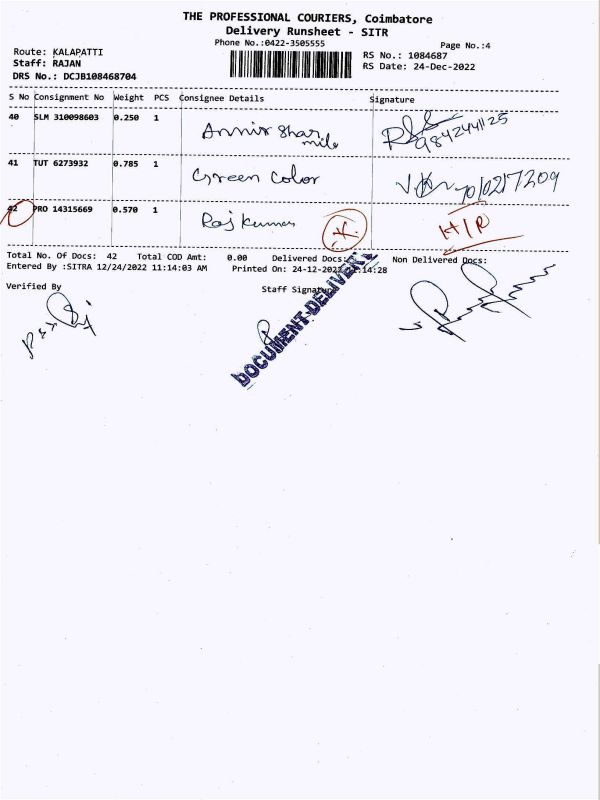 THE PROFESSIONAL COURIERS, Coimbatore
Delivery Runsheet - SITR
Phone No.:0422-3505555
Page No.:4
Route: KALAPATTI
RS No.: 1084687
Staff: RAJAN
RS Date: 24-Dec-2022
DRS No.: DCJB108468704
S No Consignment No Weight PCS Consignee Details Signature
40 SLM 310098603 0.250 1
mile
9842441125
41 TUT 6273932 0.785 1 Green Color
42 PRO 14315669 0.570 1 Raj Kumar H/R
Total No. Of Docs: 42 Total COD Amt: 0.00 Delivered Docs: Non Delivered Docs:
Entered By :SITRA 12/24/2022 11:14:03 AM Printed On: 24-12-2022 11:14:28
Verified By Staff Signature
DOCUMENT-DELIVERY